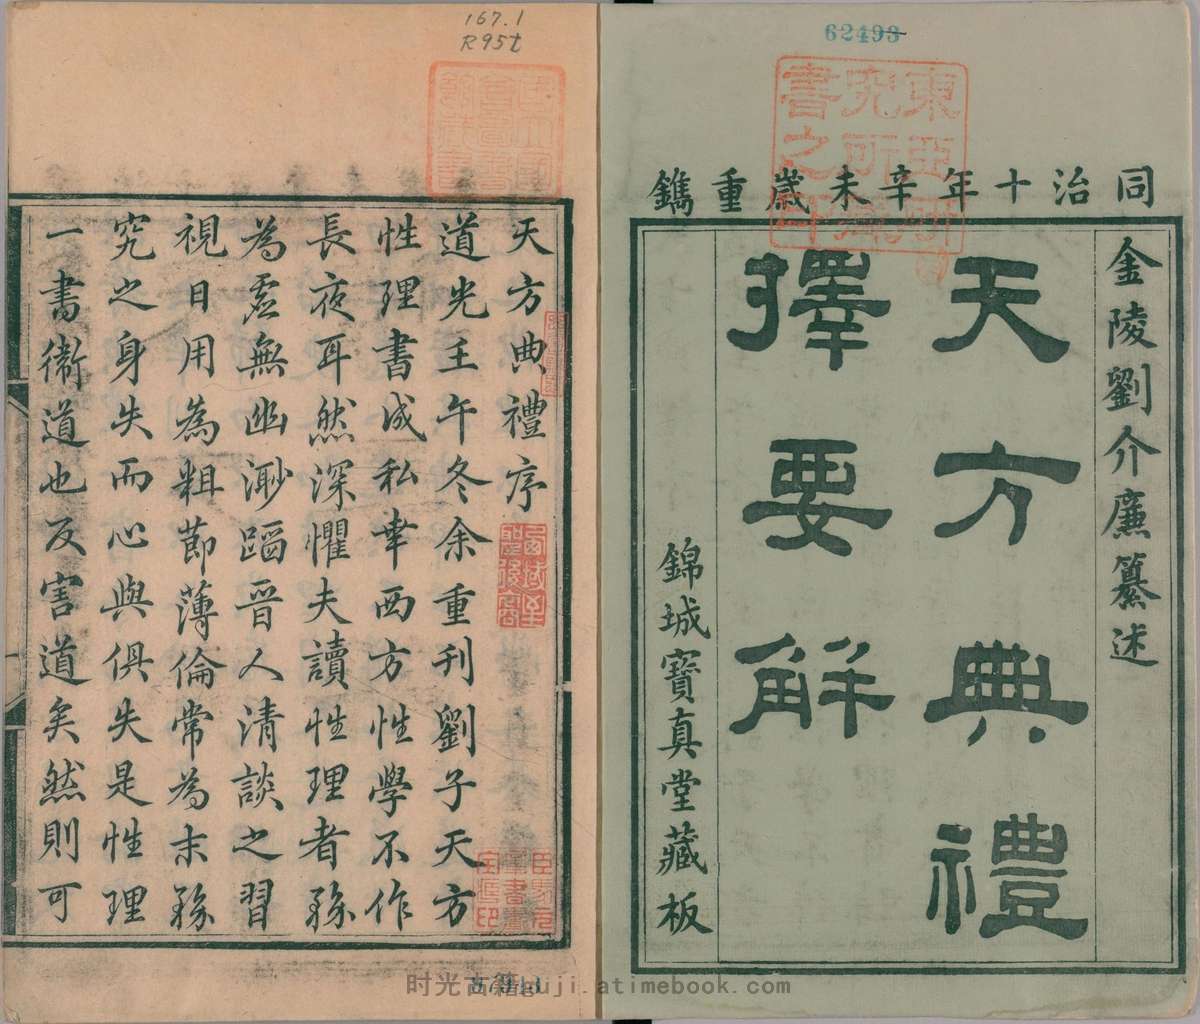 62493
同治十年辛未歲重鐫
金陵劉介廉纂述
天方典禮
擇要解
錦城寶真堂藏板
167.1
R95t
天方典禮序
道光壬午冬余重刊劉子天方
性理書成私幸西方性學不作
長夜耳然深懼夫讀性理者務
為虛無幽渺蹈晉人清談之習
視日用為粗節薄倫常為末務
究之身失而心與俱失是性理
一書衛道也反害道矣然則可
时光古籍guji.atimebook.com